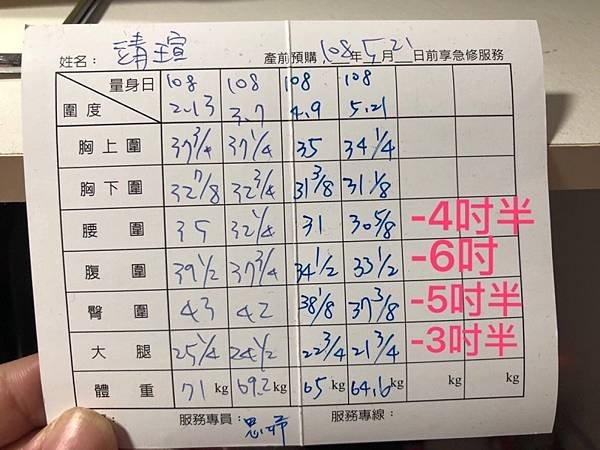 姓名： 請瑄 產前預購 108年5月21日前享急修服務
量身日 108 2.13 108 3.7 108 4.9 108 5.21
圍度
胸上圍 37 3/4 37 1/4 35 34 1/4
胸下圍 32 7/8 32 3/4 31 3/8 31 1/8
腰圍 35 32 1/4 31 30 5/8 -4吋半
腹圍 39 1/2 37 3/4 34 1/2 33 1/2 -6吋
臀圍 43 42 38 1/8 37 3/8 -5吋半
大腿 25 1/4 24 1/2 22 3/4 21 3/4 -3吋半
體重 71 kg 69.2 kg 65 kg 64.6 kg kg kg
服務專員： 服務專線：